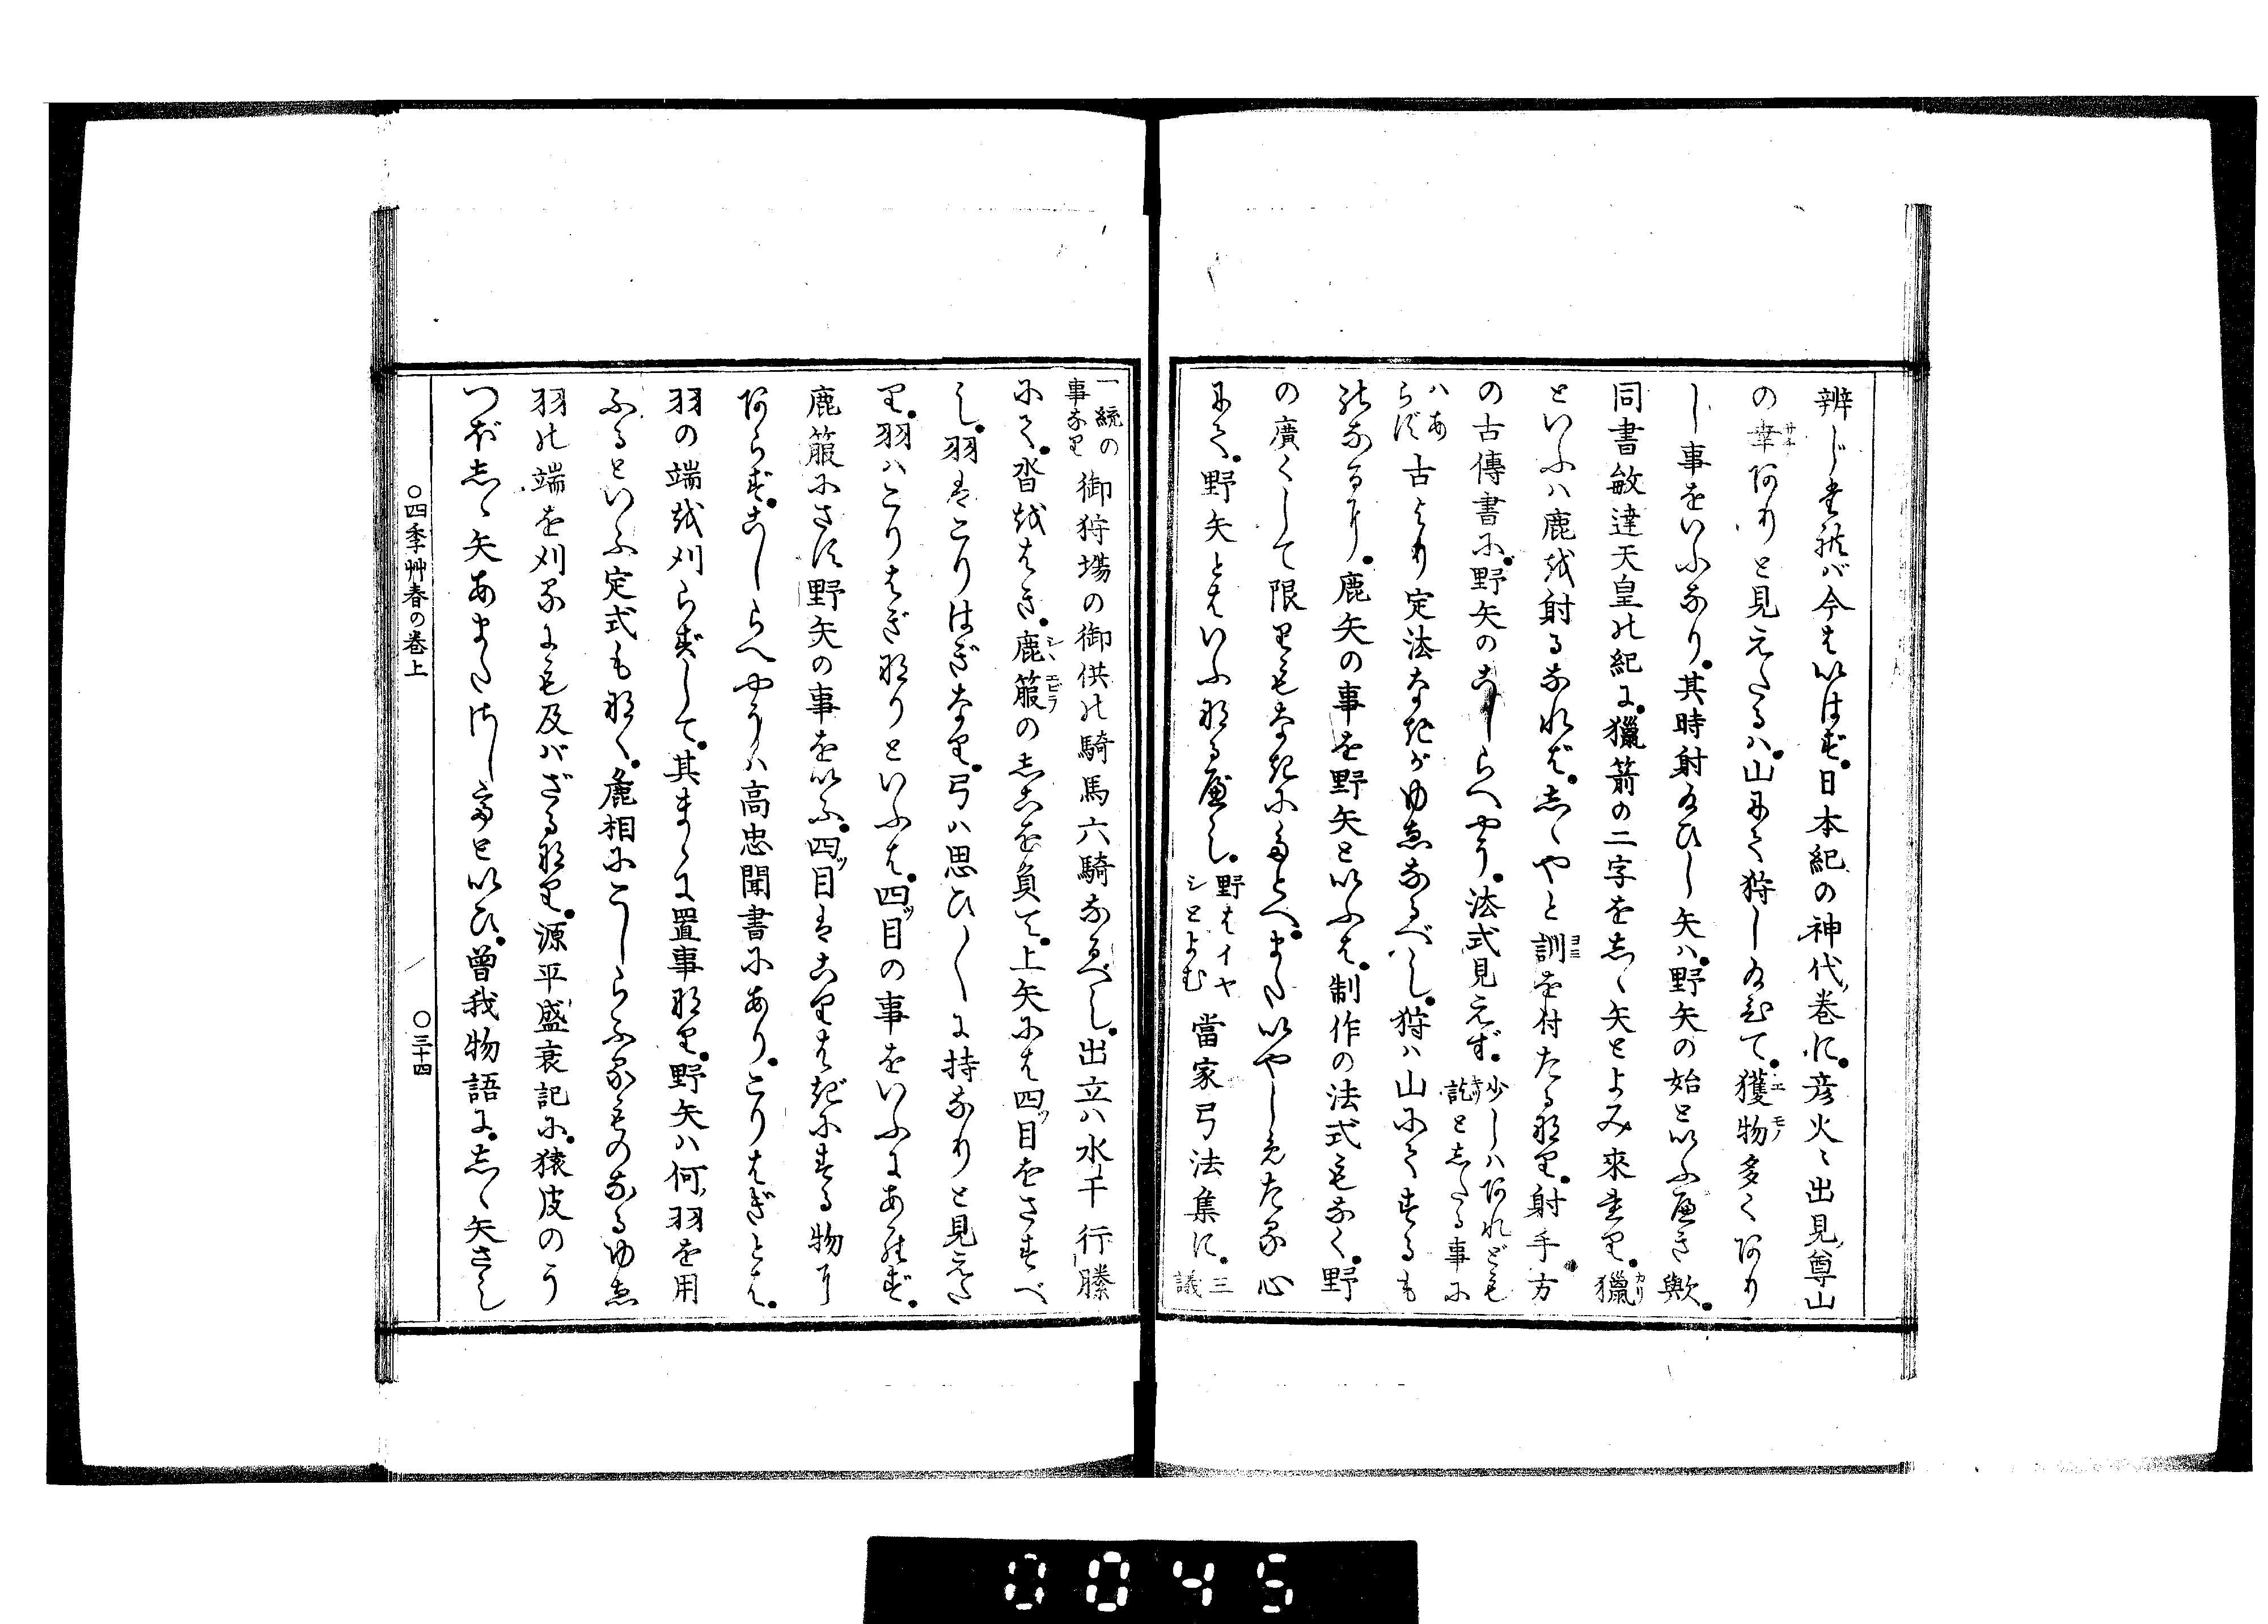 辨じ難ければ今はいはず。日本紀の神代巻に。彦火々出見尊山
の幸ありと見えたるハ。山にて狩し給ひて。獲物多くあり
し事をいふなり。其時射給ひし矢ハ。野矢の始といふべき歟。
同書敏達天皇の紀に。獵箭の二字をしゝ矢とよみ來れり。獵
といふハ鹿を射るなれば。しゝやと訓を付たる也。射手方
の古傳書に。野矢のこしらへやう。法式見えず。少しハあれども訖としたる事に
ハあらず古より定法なきがゆゑなるべし。狩ハ山にてするも
のなるに。鹿矢の事を野矢といふは。制作の法式もなく。野
の廣くして限りもなきにたとへ。またいやしめたる心
にて。野矢とはいふなるべし。野はイヤシとよむ當家弓法集に。三議
一統の事なり御狩場の御供の騎馬六騎なるべし。出立ハ水干行縢
にて。沓をはき。鹿箙のしこを負て。上矢には四ッ目をさすべ
し。羽はこりはぎなり。弓ハ思ひ〳〵に持なりと見えた
り。羽ハこりはぎなりといふは。四ッ目の事をいふにあらず。
鹿箙にさす野矢の事をいふ。四ッ目はこりはぎにする物に
あらず。こしらへやうハ高忠聞書にあり。こりはぎとは。
羽の端を刈らずして。其まゝに置事なり。野矢ハ何羽を用
ふるといふ定式もなく。麁相にこしらふるものなるゆゑ
羽の端を刈るにも及バざるなり。源平盛衰記に。猿皮のう
つぼしゝ矢あまたさし之をといひ。曽我物語に。しゝ矢さし
○四季艸春の巻上
○三十四
0045